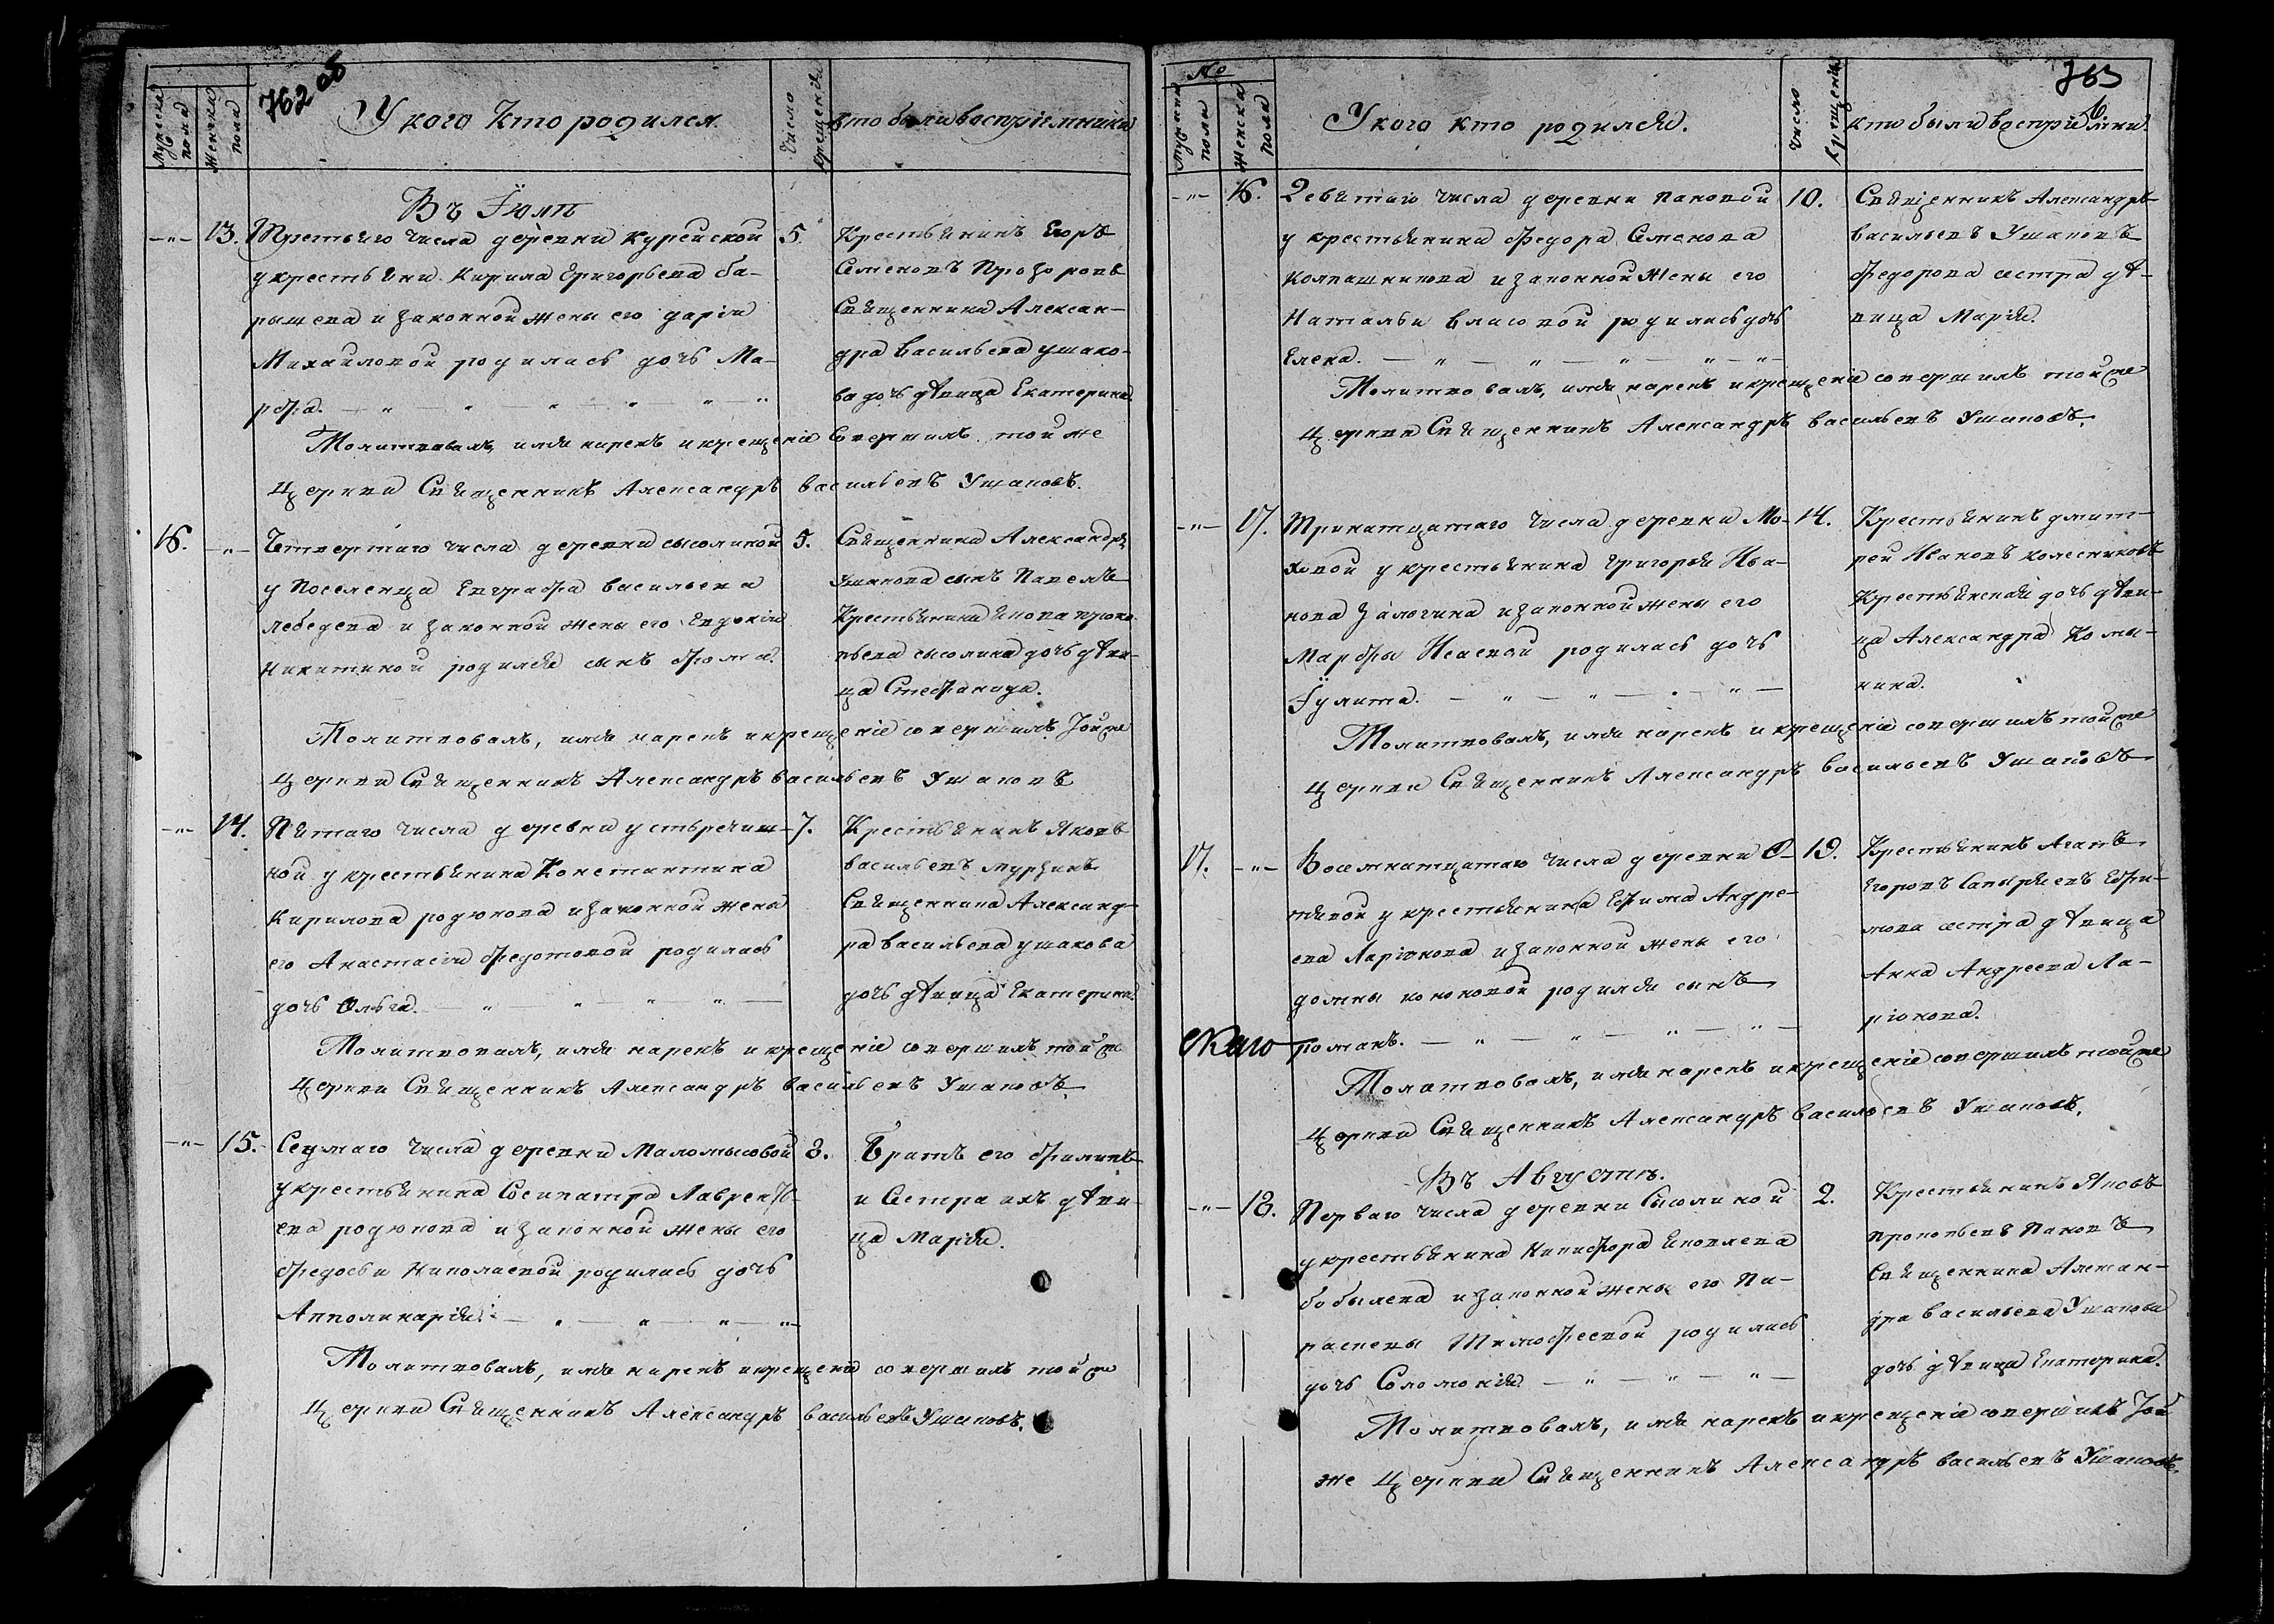 762 об
Мужеска пола
Женска пола
У кого кто родился.
Число крещенія
кто были воспріемники
Въ Іюлѣ
13. Третьяго числа деревни Курейской 5. Крестьянинъ Егоръ
у крестьяни. Кирила Григорьева ба- Семеновъ Прозоровъ
рышева и законной жены его дарьи Священника Алексан-
Михайловой родилась дочь Ма- дра Васильева ушако-
рфа. ва дочь дѣвица Екатерина.
Молитвовалъ, имя нарекъ и крещеніе совершилъ той же
церкви Священникъ Александръ васильевъ Ушаковъ.
16. Четвертаго числа деревни сысолиной 5. Священника Александра
у поселенца Евграфа васильева Ушакова сынъ Павелъ
лебедева и законной жены его Евдокіи Крестьянина Якова проко-
Никитиной родился сынъ Фома. пьева сысолина дочь дѣви-
ца Стефанида.
Молитвовалъ, имя нарекъ и крещеніе совершилъ Той же
церкви Священникъ Александръ васильевъ Ушаковъ
14. Пятаго числа деревни устьречин- 7. Крестьянинъ Яковъ
ной у крестьянина Константина васильевъ мурзинъ
Кирилова родюкова и законной жены Священника Александ-
его Анастасіи Федотовой родилась ра васильева ушакова
дочь Ольга. дочь дѣвица Екатерина.
Молитвовалъ, имя нарекъ и крещеніе совершилъ той же
церкви Священникъ Александръ васильевъ Ушаковъ.
15. Седмаго числа деревни Маломысовой 8. Братъ его Филипъ
у крестьянина Сосипатра Лаврентье- и Сестра ихъ дѣви-
ева родюкова и законной жены его ца Марія.
Федосьи Николаевой родилась дочь
Апполинарія.
Молитвовалъ, имя нарекъ и крещеніе совершилъ той же
церкви Священникъ Александръ васильевъ Ушаковъ.
763
№
Мужеска пола
Женска пола
У кого кто родился.
Число крещенія
кто были воспріемники.
16. Девятаго числа деревни пановой 10. Священникъ Александръ
у крестьянина Федора Семенова васильевъ Ушаковъ
Колпашникова и законной жены его Федорова сестра дѣ-
Натальи власовой родилась дочь вица Марія.
Елена.
Молитвовалъ, имя нарекъ и крещеніе совершилъ той же
церкви Священникъ Александръ васильевъ Ушаковъ.
17. Тринатцатаго числа деревни Мо- 14. Крестьянинъ дмит-
ховой у крестьянина Григорья Ива- рей Ивановъ колесниковъ
нова Залогина и законной жены его Крестьянская дочь дѣви-
Марфы Исаевой родилась дочь ца Александра Комы-
Іулита. нина.
Молитвовалъ, имя нарекъ и крещеніе совершилъ той же
церкви Священникъ Александръ васильевъ Ушаковъ
17. Восемнатцатаго числа деревни 19. Крестьянинъ Агапъ
у крестьянина Ефима Андре- Егоровъ Ефи-
ева Ларіонова и законной жены его мова сестра дѣвица
домны кононовой родился сынъ Анна Андреева Ла-
романъ. ріонова.
скаго
Молитвовалъ, имя нарекъ и крещеніе совершилъ той же
церкви Священникъ Александръ васильевъ Ушаковъ.
Въ Августѣ.
18. Перваго числа деревни Сысолиной 2. Крестьянинъ Яковъ
у крестьянина Никифора Яковлева прокопьевъ Пановъ
бобылева и законной жены его Па- Священника Алексан-
раскевы Тимофеевой родилась дра васильева Ушакова
дочь Соломонія дочь дѣвица Екатерина.
Молитвовалъ, имя нарекъ и крещеніе совершилъ Той
же церкви Священникъ Александръ васильевъ Ушаковъ.